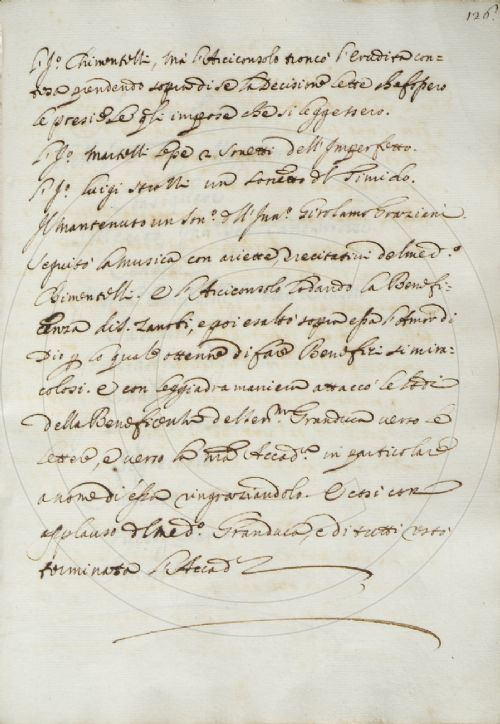 126.
Il S.r Chimentelli, ma l'Arciconsolo troncò l'erudita con-
tesa prendendo sopra di sè la Decisione
le poesie che gli impose che si leggessero.
Il S.r Martelli lesse 2 sonetti dell'Imperfetto.
Il S.r Luigi Strozzi un sonetto del Timido.
Il Mantenuto un Son.o dell' Girolamo Graziani
Seguitò la musica con ariette, e recitativi del med.o
Chimentelli. E l'Arciconsolo lodando la Benefi-
cenza di S. Zanobi, e poi esaltò sopra essa l'Amor di
Dio p lo quale ottenne di fare Benefizi si mira-
colosi. e con leggiadra maniera attaccò le lodi
della Beneficenza del Ser.mo Granduca verso le
lettere, e verso la n̄ra Accad.a in particolare
a nome di essa ringraziandolo. E così con
applauso del med.o Granduca, e di tutti restò
terminata l'Accad.a